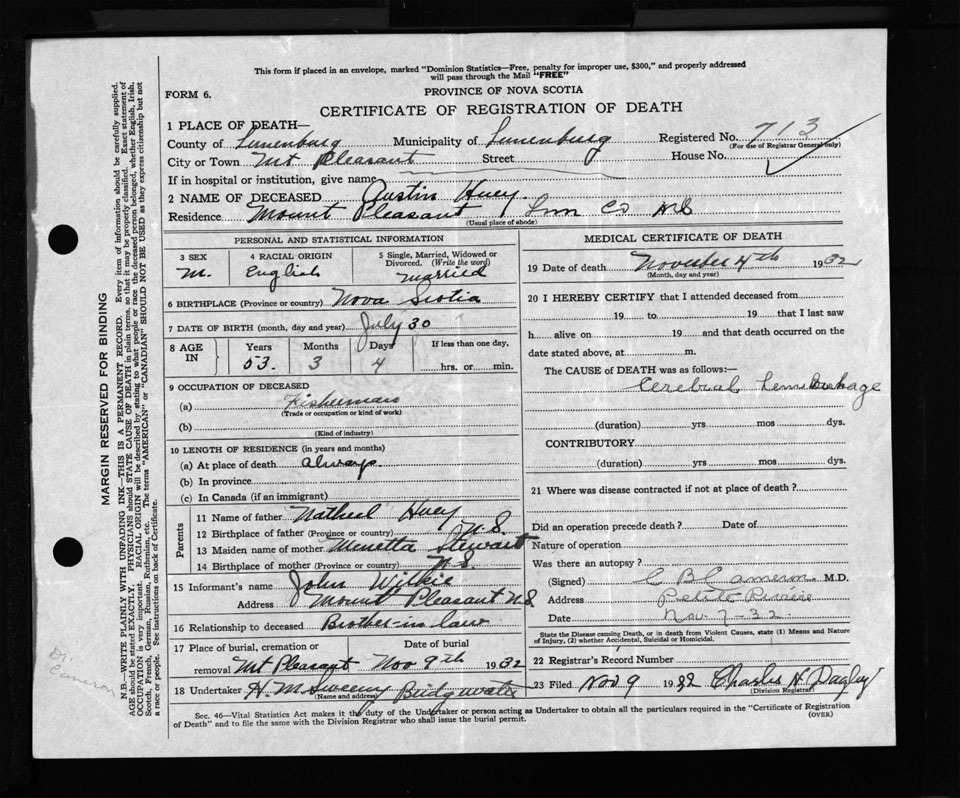 This form if placed in an envelope, marked "Dominion Statistics—Free, penalty for improper use, $300," and properly addressed
will pass through the Mail "FREE"
FORM 6.
PROVINCE OF NOVA SCOTIA
CERTIFICATE OF REGISTRATION OF DEATH
1 PLACE OF DEATH—
County of Lunenburg Municipality of Lunenburg Registered No. 713
(For use of Registrar General only)
City or Town Mt Pleasant Street House No.
If in hospital or institution, give name
2 NAME OF DECEASED Austin Huey.
Residence Mount Pleasant Lun Co N.S
(Usual place of abode)
PERSONAL AND STATISTICAL INFORMATION
3 SEX 4 RACIAL ORIGIN 5 Single, Married, Widowed or
Divorced. (Write the word)
M. English married
6 BIRTHPLACE (Province or country) Nova Scotia
7 DATE OF BIRTH (month, day and year) July 30
8 AGE IN Years Months Days If less than one day,
53. 3 4 hrs. or min.
9 OCCUPATION OF DECEASED
(a) Fisherman
(Trade or occupation or kind of work)
(b)
(Kind of industry)
10 LENGTH OF RESIDENCE (in years and months)
(a) At place of death always.
(b) In province
(c) In Canada (if an immigrant)
Parents
11 Name of father Huey
12 Birthplace of father (Province or country) N.S.
13 Maiden name of mother Stewart
14 Birthplace of mother (Province or country) N.S.
15 Informant's name John Wilkie
Address Mount Pleasant N.S
16 Relationship to deceased Brother-in-law
17 Place of burial, cremation or Date of burial
removal Mt Pleasant Nov 9th 1932
18 Undertaker H. M Sweeny Bridgwater
(Name and address)
MEDICAL CERTIFICATE OF DEATH
19 Date of death November 4th 1932
(Month, day and year)
20 I HEREBY CERTIFY that I attended deceased from
19 to 19 that I last saw
h alive on 19 and that death occurred on the
date stated above, at m.
The CAUSE of DEATH was as follows:—
Cerebral
(duration) yrs mos dys.
CONTRIBUTORY
(duration) yrs mos dys.
21 Where was disease contracted if not at place of death?
Did an operation precede death? Date of
Nature of operation
Was there an autopsy?
(Signed) C B Cameron M.D.
Address Petite Riviere
Date Nov. 7 32
State the Disease causing Death, or in death from Violent Causes, state (1) Means and Nature
of Injury, (2) whether Accidental, Suicidal or Homicidal.
22 Registrar's Record Number
23 Filed Nov 9 1932 Charles H Dagley
(Division Registrar)
Sec. 46—Vital Statistics Act makes it the duty of the Undertaker or person acting as Undertaker to obtain all the particulars required in the "Certificate of Registration
of Death" and to file the same with the Division Registrar who shall issue the burial permit.
(OVER)
MARGIN RESERVED FOR BINDING
N.B.—WRITE PLAINLY WITH UNFADING INK—THIS IS A PERMANENT RECORD. Every item of information should be carefully supplied.
AGE should be stated EXACTLY. PHYSICIANS should STATE CAUSE OF DEATH in plain terms, so that it may be properly classified. Exact statement of
OCCUPATION is very important. RACIAL ORIGIN will be described by stating to what people or race the deceased person belonged, whether English, Irish,
Scotch, French, German, Russian, Ruthenian, etc. The terms "AMERICAN" or "CANADIAN" SHOULD NOT BE USED as they express citizenship but not
a race or people. See instructions on back of Certificate.
Dr.
Cameron